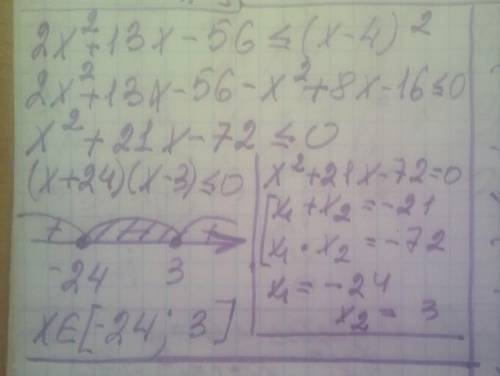 2x²+13x-56≤(x-4)²
2x²+13x-56-x²+8x-16≤0
x²+21x-72≤0
(x+24)(x-3)≤0
+ - +
-24 3
x∈[-24; 3]
x²+21x-72=0
x₁+x₂=-21
x₁·x₂=-72
x₁=-24
x₂=3